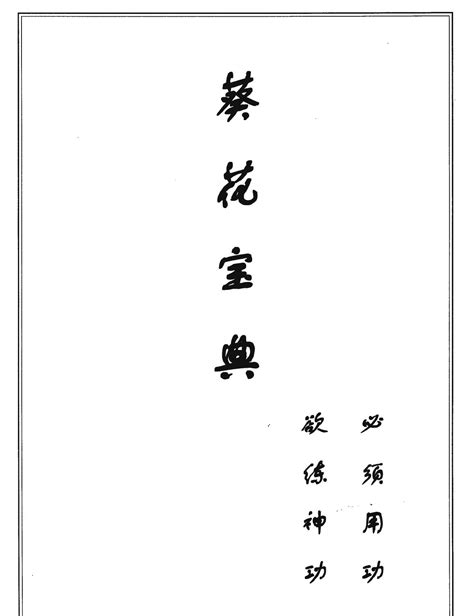 葵花宝典
欲练神功
必须用功